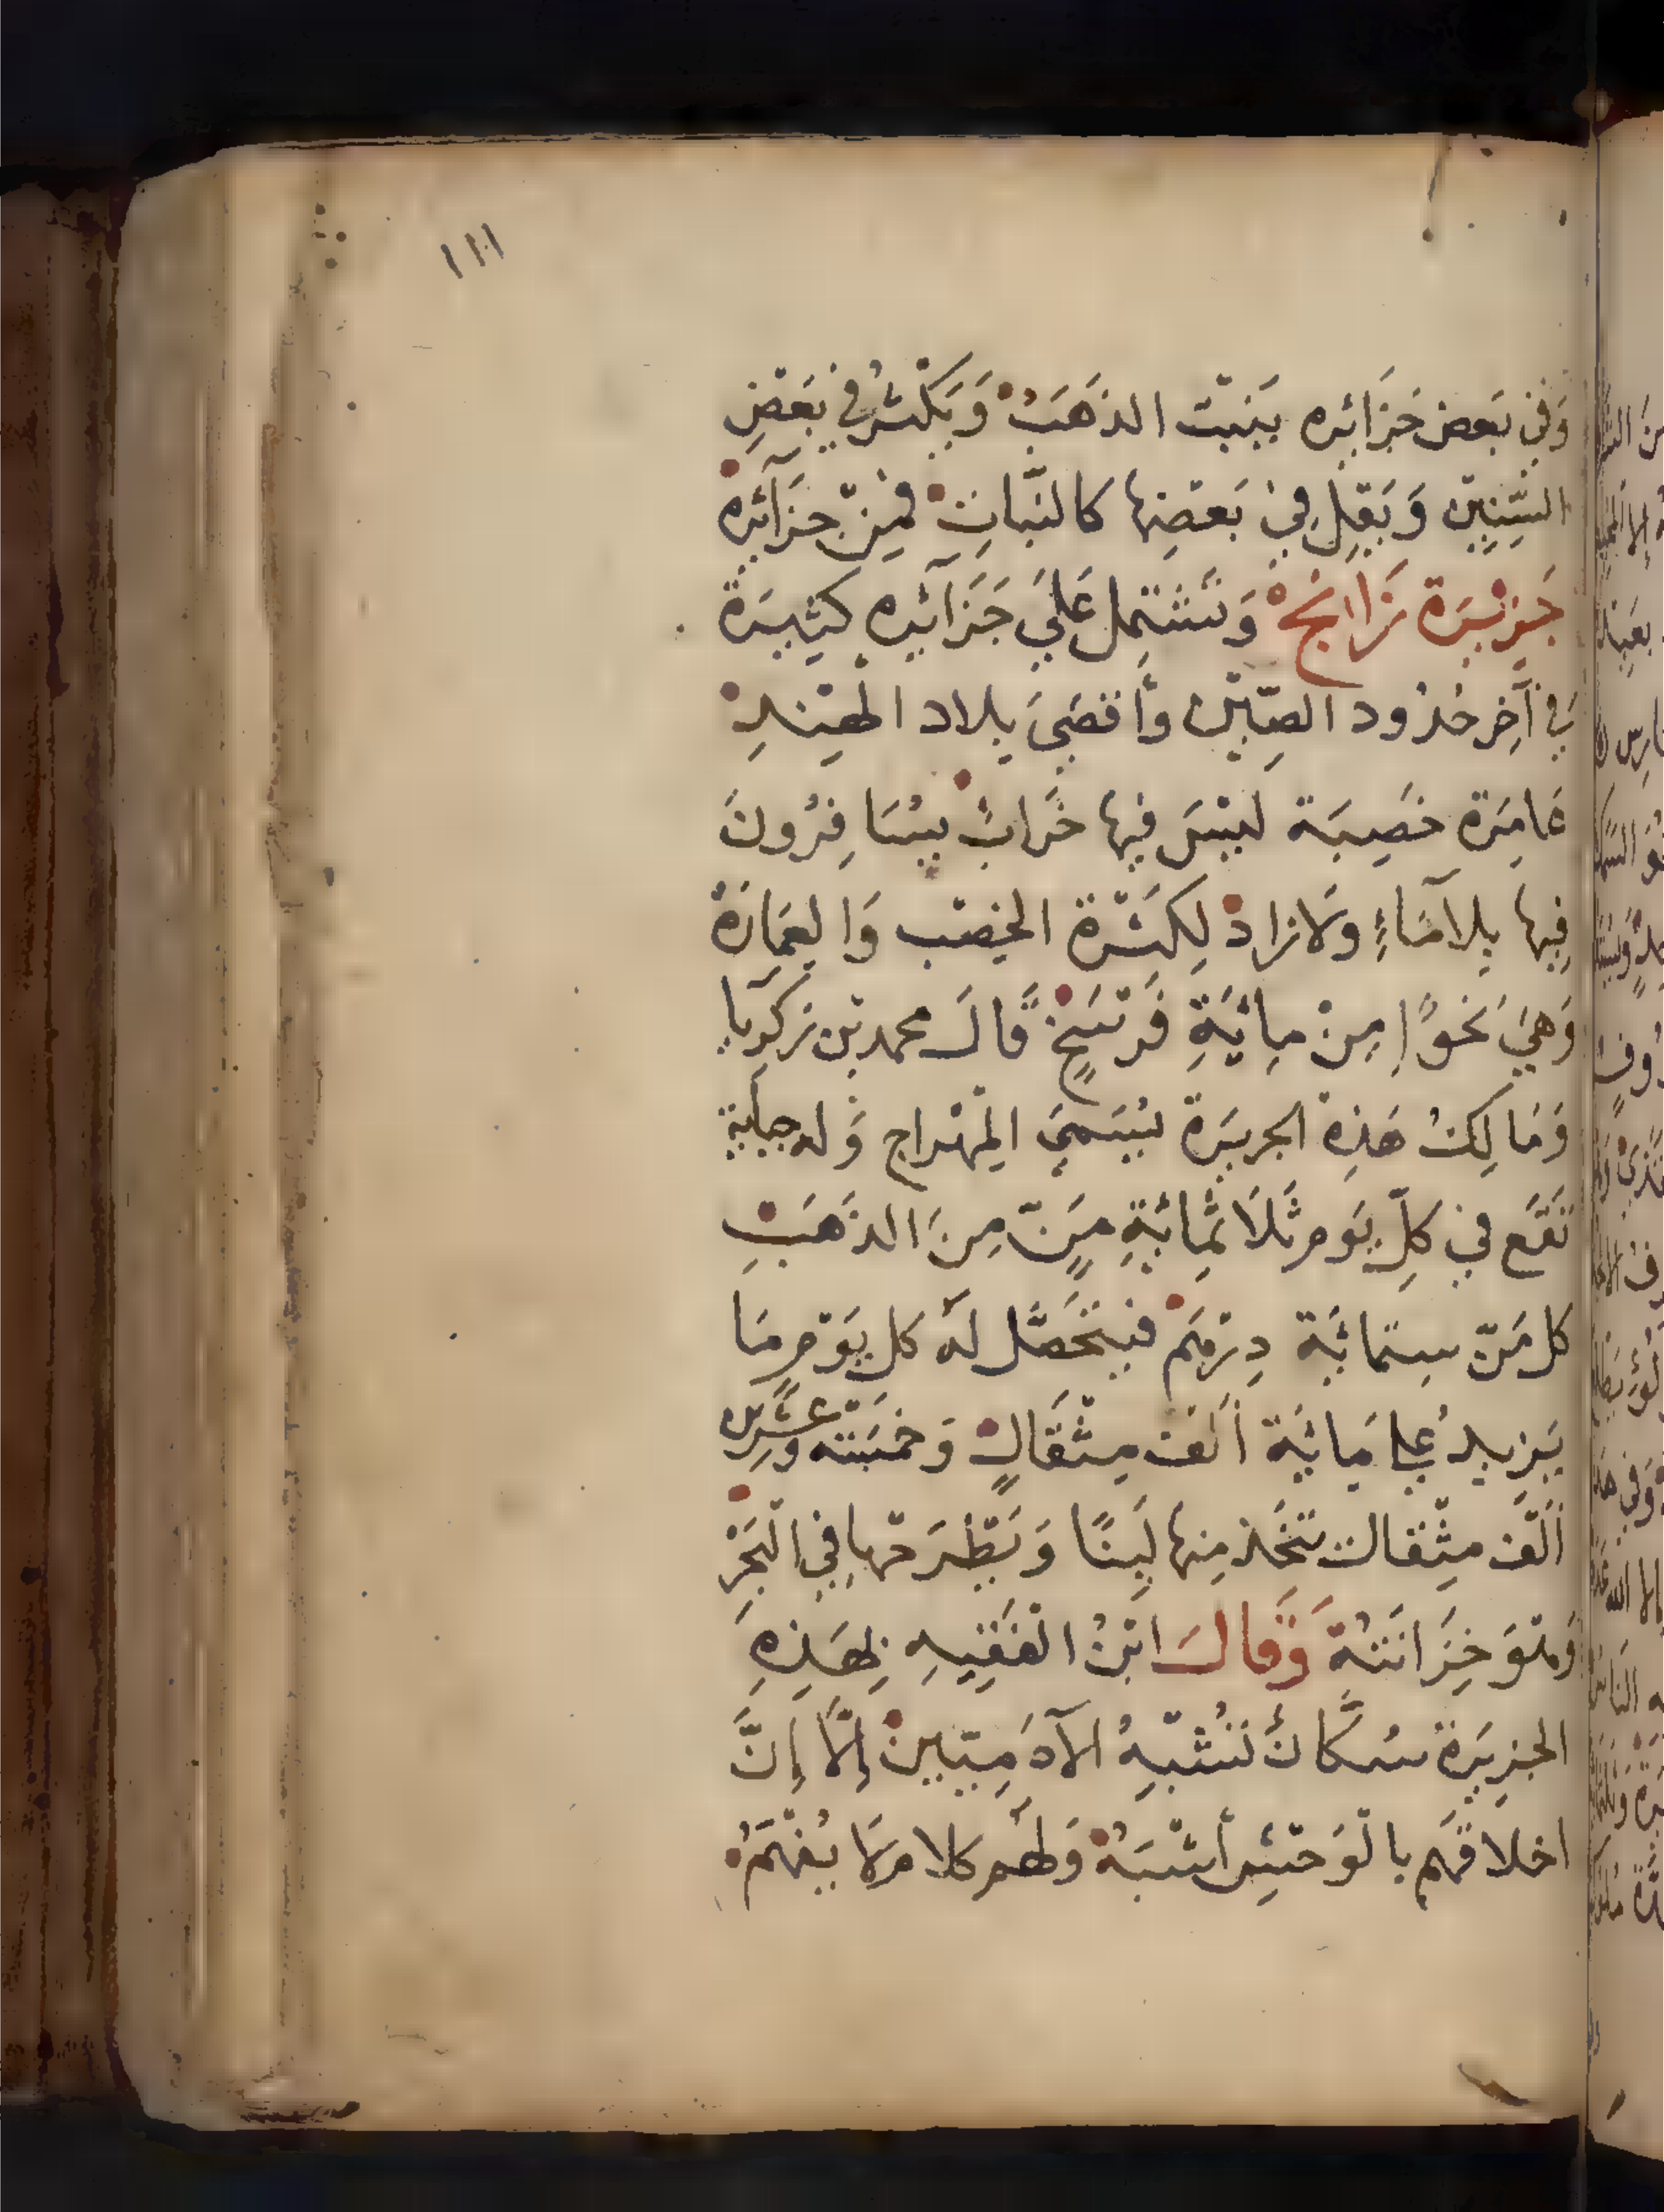 ١١١
وَفِي بَعض جَزَائِره يَنبت الذهَبُ وَيَكْثُر في بَعْضِ
السِّنِين وَيَقِل فِي بَعضِها كالنبَاتِ فمِنْ جزَآئره
جَزِيْرَة زَانج وَتَشتمِل عَلَي جَزَآئره كَثِيرَة
في آخِر حُدُود الصِّين وأقصَى بلاد الهِندِ
عَامِرَة خَصِبَة ليْسَ فِيها خَرَابٌ يسَافِرُونَ
فِيها بِلا مَاءٍ ولا زاد لِكثرة الخِصْب وَالعِمَارَة
وَهِيَ نَحوًا مِنْ مِائَةِ فَرْسَخٍ قَالَ محمد بن زكريا
وَمَالِكُ هَذِه الجزيرَة يُسَمي المِهْرَاج وَله جباية
تَقَع في كلِّ يَوم ثَلَاثمِائةِ مَنٍّ مِنَ الذهَبِ
كل مَنّ ستمائَة دِرْهَم فيتحَصَّل لهُ كل يَوْم مَا
يَزِيدُ عَلى مِائَة ألف مِثْقَالٍ وَخمسَة وَعِشْرِين
ألْف مِثْقال تتخَذ مِنها لَبِنًا وَيَطْرَحْهَا فِي الْبَحْر
وَهْوَ خِزَانَتُهُ وَقَالَ ابْنُ الْفَقِيهِ بِهَذِهِ
الجزِيرَة سُكَّانٌ تُشْبِهُ الآدَمِيّين إِلَّا إِنَّ
اخلاقَهم بِالْوَحْشِ أشْبَهُ وَلَهُم كلام لا يُفْهَمُ